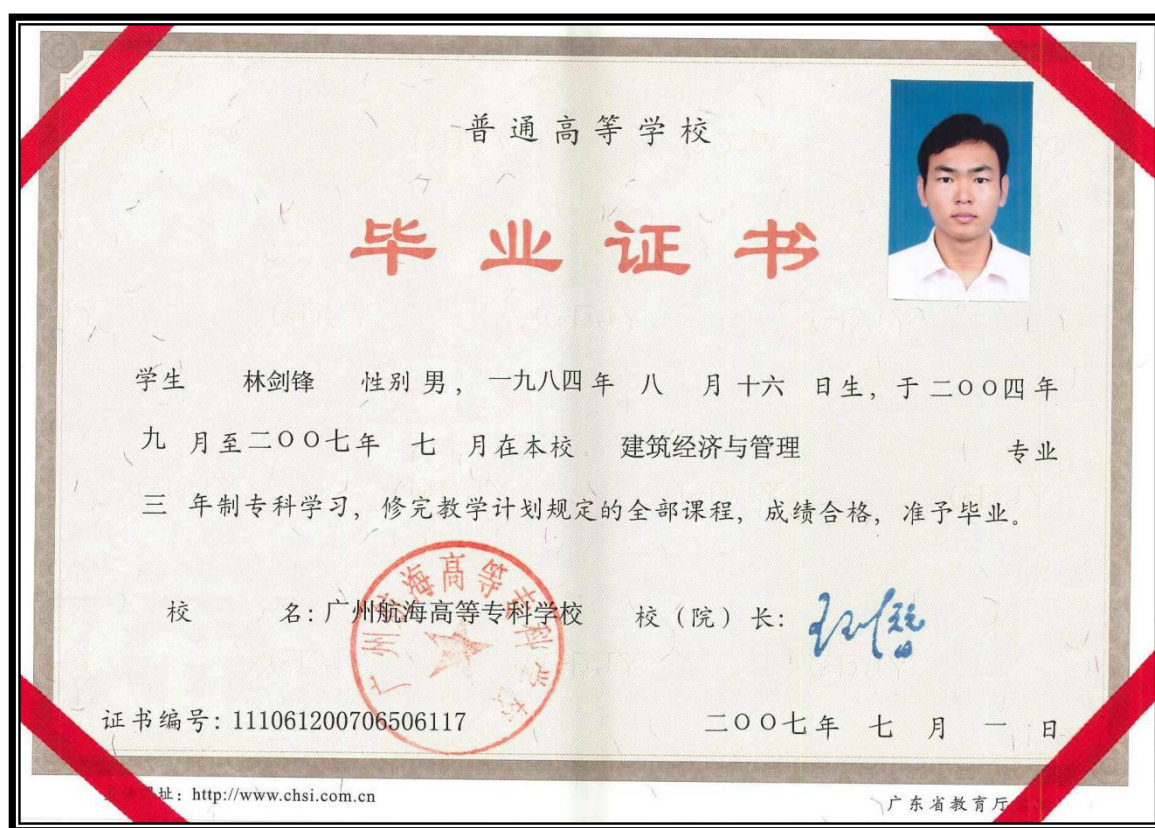 普通高等学校
毕业证书
学生 林剑锋 性别 男， 一九八四 年 八 月 十六 日生，于 二〇〇四 年
九 月至 二〇〇七 年 七 月在本校 建筑经济与管理 专业
三 年制专科学习，修完教学计划规定的全部课程，成绩合格，准予毕业。
校 名：广州航海高等专科学校 校（院）长：
广州航海高等专科学校
证书编号：111061200706506117 二〇〇七 年 七 月 一 日
址：http://www.chsi.com.cn 广东省教育厅